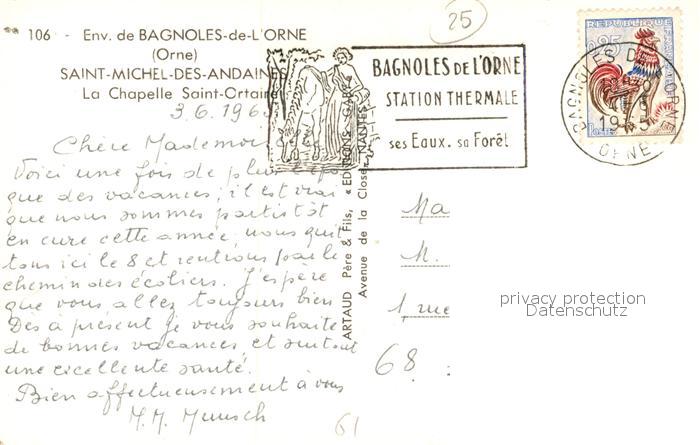 25
106 - Env. de BAGNOLES-de-L'ORNE
(Orne)
SAINT-MICHEL-DES-ANDAINES
La Chapelle Saint-Ortaire
3.6.196
BAGNOLES DE L'ORNE
STATION THERMALE
ses Eaux. sa Forêt
REPUBLIQUE FRANÇAISE
0,25
Postes
BAGNOLES DE L'ORNE
ORNE
Chère Mademoi
Voici une fois de plus l'épo
que des vacances; il est vrai
que nous sommes partis tôt
en cure cette année, nous quit
tons ici le 8 et rentrons par le
chemin des écoliers. J'espère
que vous allez toujours bien
Dès à présent je vous souhaite
de bonnes vacances et surtout
une excellente santé.
Bien affectueusement à vous
M.M. Munsch
ARTAUD Père & Fils, « EDITIONS GABY »
Avenue de la Close NANTES
Ma
M.
1, rue
68
61
privacy protection
Datenschutz